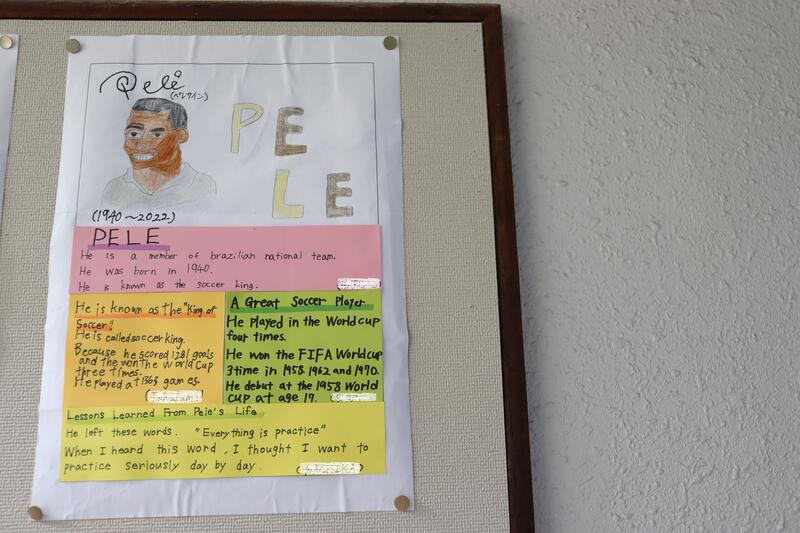 Pelé
(ペレ サイン)
PE
LE
(1940~2022)
PELE
He is a member of brazilian national team.
He was born in 1940.
He is known as the soccer king.
He is known as the "King of
Soccer"
He is called soccer king.
Because he scored 1281 goals
and the won the World Cup
three times.
He played at 1363 games.
A Great Soccer Player
He played in the World cup
four times.
He won the FIFA World cup
3time in 1958. 1962 and 1970.
He debut at the 1958 World
cup at age 17.
Lessons Learned From Pele's Life
He left these words. "Everything is practice"
When I heard this word, I thought I want to
practice seriously day by day.